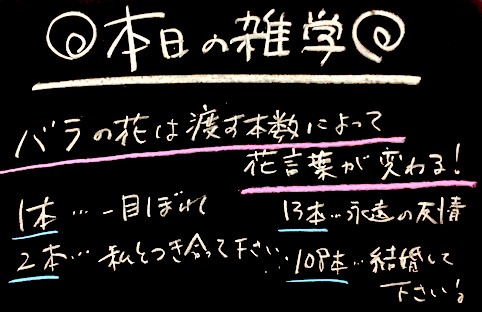 本日の雑学
バラの花は渡す本数によって
花言葉が変わる!
1本…一目ぼれ
2本…私とつき合って下さい…
13本…永遠の友情
108本…結婚して
下さい。